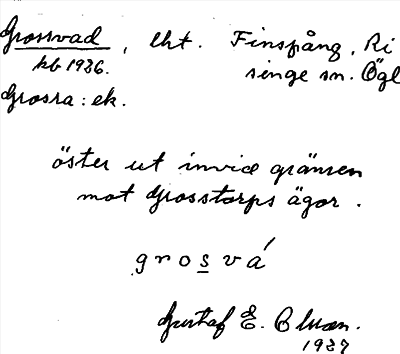 Grossvad, lht. Finspång, Ri
kb 1926. singe sn. Ögl
Grosra: ek.
öster ut invid gränsen
mot Grosstorps ägor.
grosvá
Gustaf E. Oluan.
1927